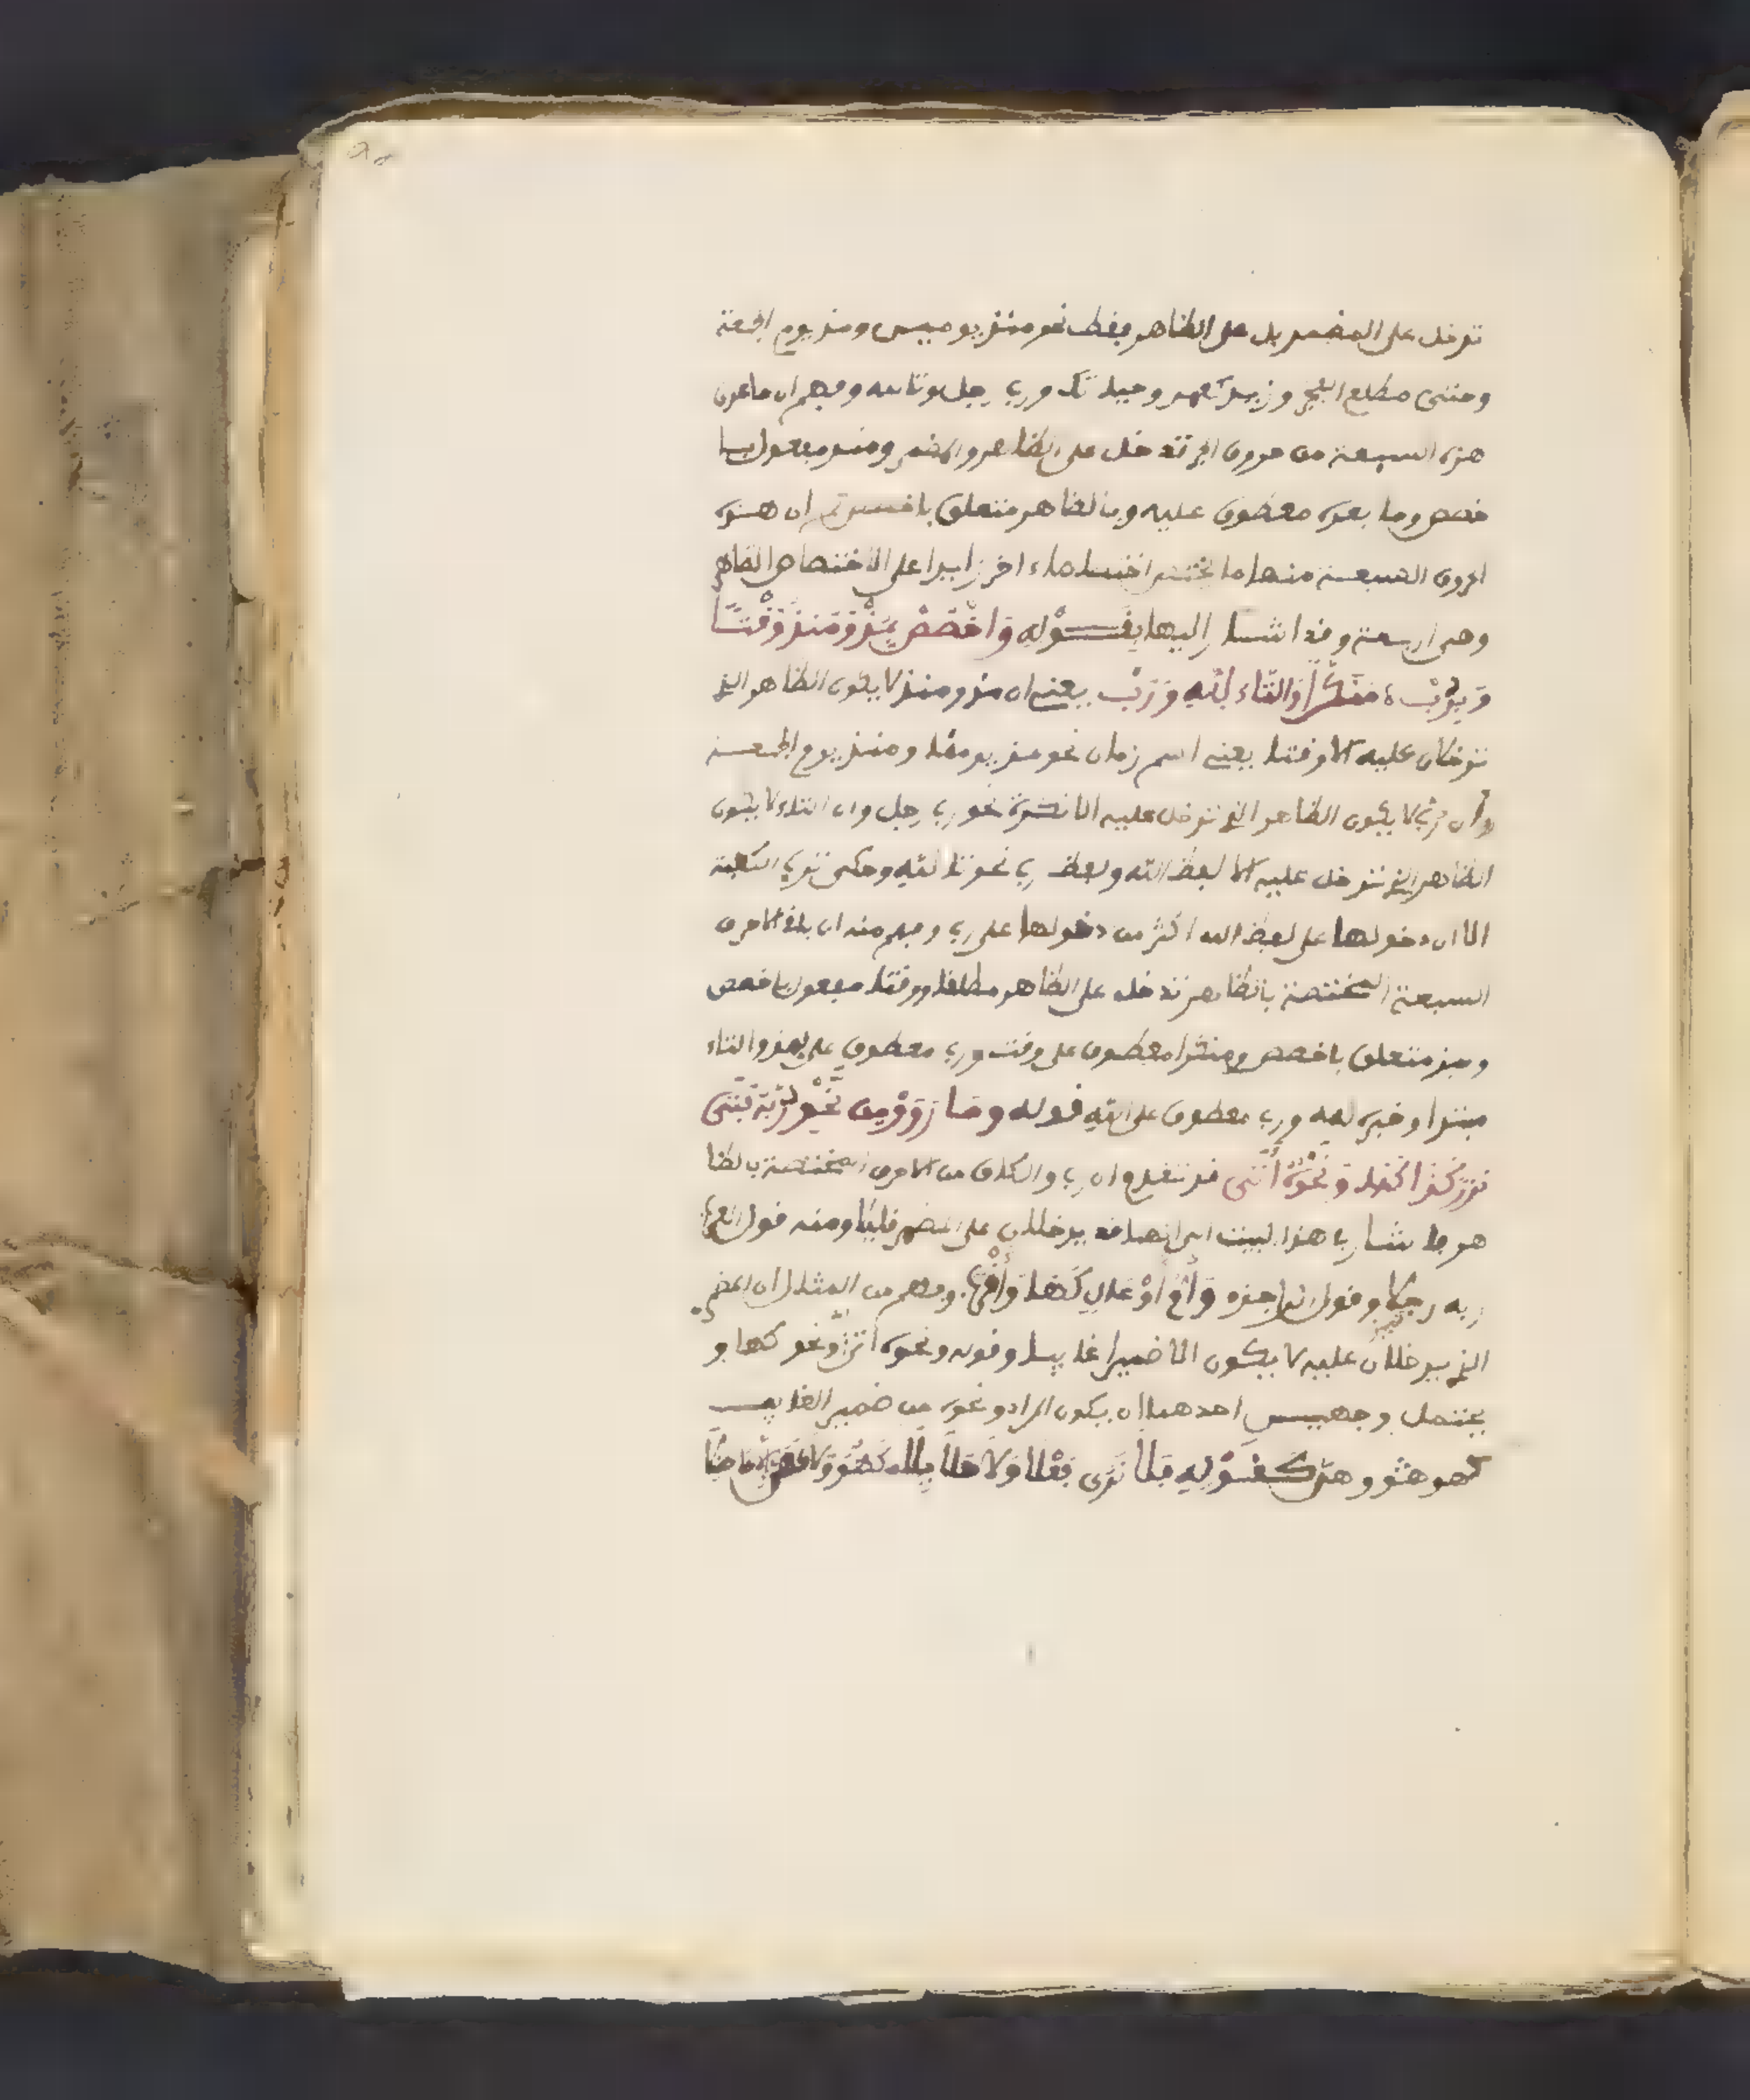 تدخل على المضمر بل على الظاهر فقط نحو منذ يومين ومنذ يوم الجمعة
وحتى مطلع الفجر وزيد كعمرو وحياتك ورب رجل وتالله وفهم ان ما عدى
هذه السبعة من حروف الجر تدخل على الظاهر والمضمر ومنذ مفعول با
خصص وما بعده معطوف عليه وبالظاهر متعلق باخصص ثم ان هذه
الحروف السبعة منها ما يختص اختصاصا اخر زايدا على الاختصاص بالظاهر
وهي اربعة وقد اشار اليها بقوله وَاخْصُصْ بِمُذْ وَمُنْذُ وَقْتًا
وَبِرُبْ مُنَكَّرًا وَالتَّاءُ لِلَّهِ وَرَبْ يعني ان مذ ومنذ لا يكون الظاهر الذي
تدخلان عليه الا وقتا يعني اسم زمان نحو منذ يومنا ومنذ يوم الجمعة
وان رب لا يكون الظاهر الذي تدخل عليه الا نكرة نحو رب رجل وان التاء لا يكون
الظاهر الذي تدخل عليه الا لفظ الله ولفظ رب نحو تالله وحكى ترب الكعبة
الا ان دخولها على لفظ الله اكثر من دخولها على رب وفهم منه ان باقي الاحرف
السبعة المختصة بالظاهر تدخل على الظاهر مطلقا ووقتا مفعول باخصص
وبمذ متعلق باخصص ومنكرا معطوف على وقت ورب معطوف على بمذ والتاء
مبتدا وخبره لله ورب معطوف على الله قوله وما رَوَوْا مِن نَّحْوِ رُبَّهُ فَتَى
نَزْرٌ كَذَا كَهَا وَنَحْوُهُ أَتَى قد تقدم ان رب والكاف من الاحرف المختصة بالظا
هر واشار بهذا البيت الى انهما قد يدخلان على المضمر قليلا ومنه قول العرب
ربه رجلا وقول الراجز وَأُمَّ أَوْعَالٍ كَهَا وَأَقْرَبَا وفهم من المثال ان المضمر
الذي يدخلان عليه لا يكون الا ضميرا غايبا وقوله ونحوه اتى ونحو كها و
يحتمل وجهين احدهما ان يكون المراد ونحوه من ضمير الغايب
كهو وهن كقوله فَلَا تَرَى بَعْلًا وَلَا حَلَائِلَا كَهُوَ وَلَا كَهُنَّ إِلَّا حَاظِلَا